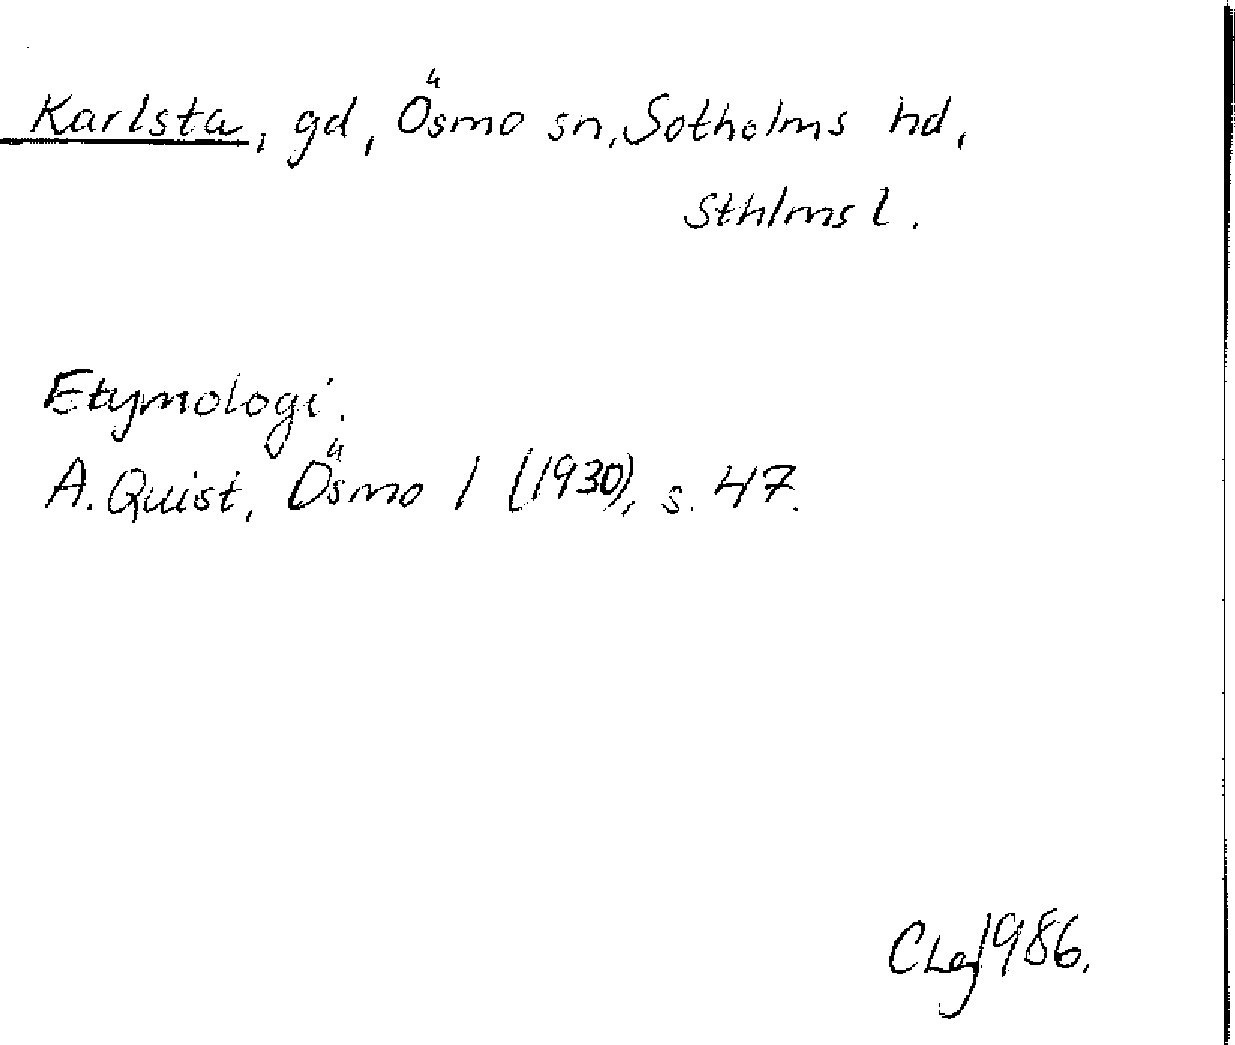 Karlsta, gd, Ösmo sn, Sotholms hd,
Sthlms l.
Etymologi.
A. Quist, Ösmo 1 (1930), s. 47.
CLag 1986.